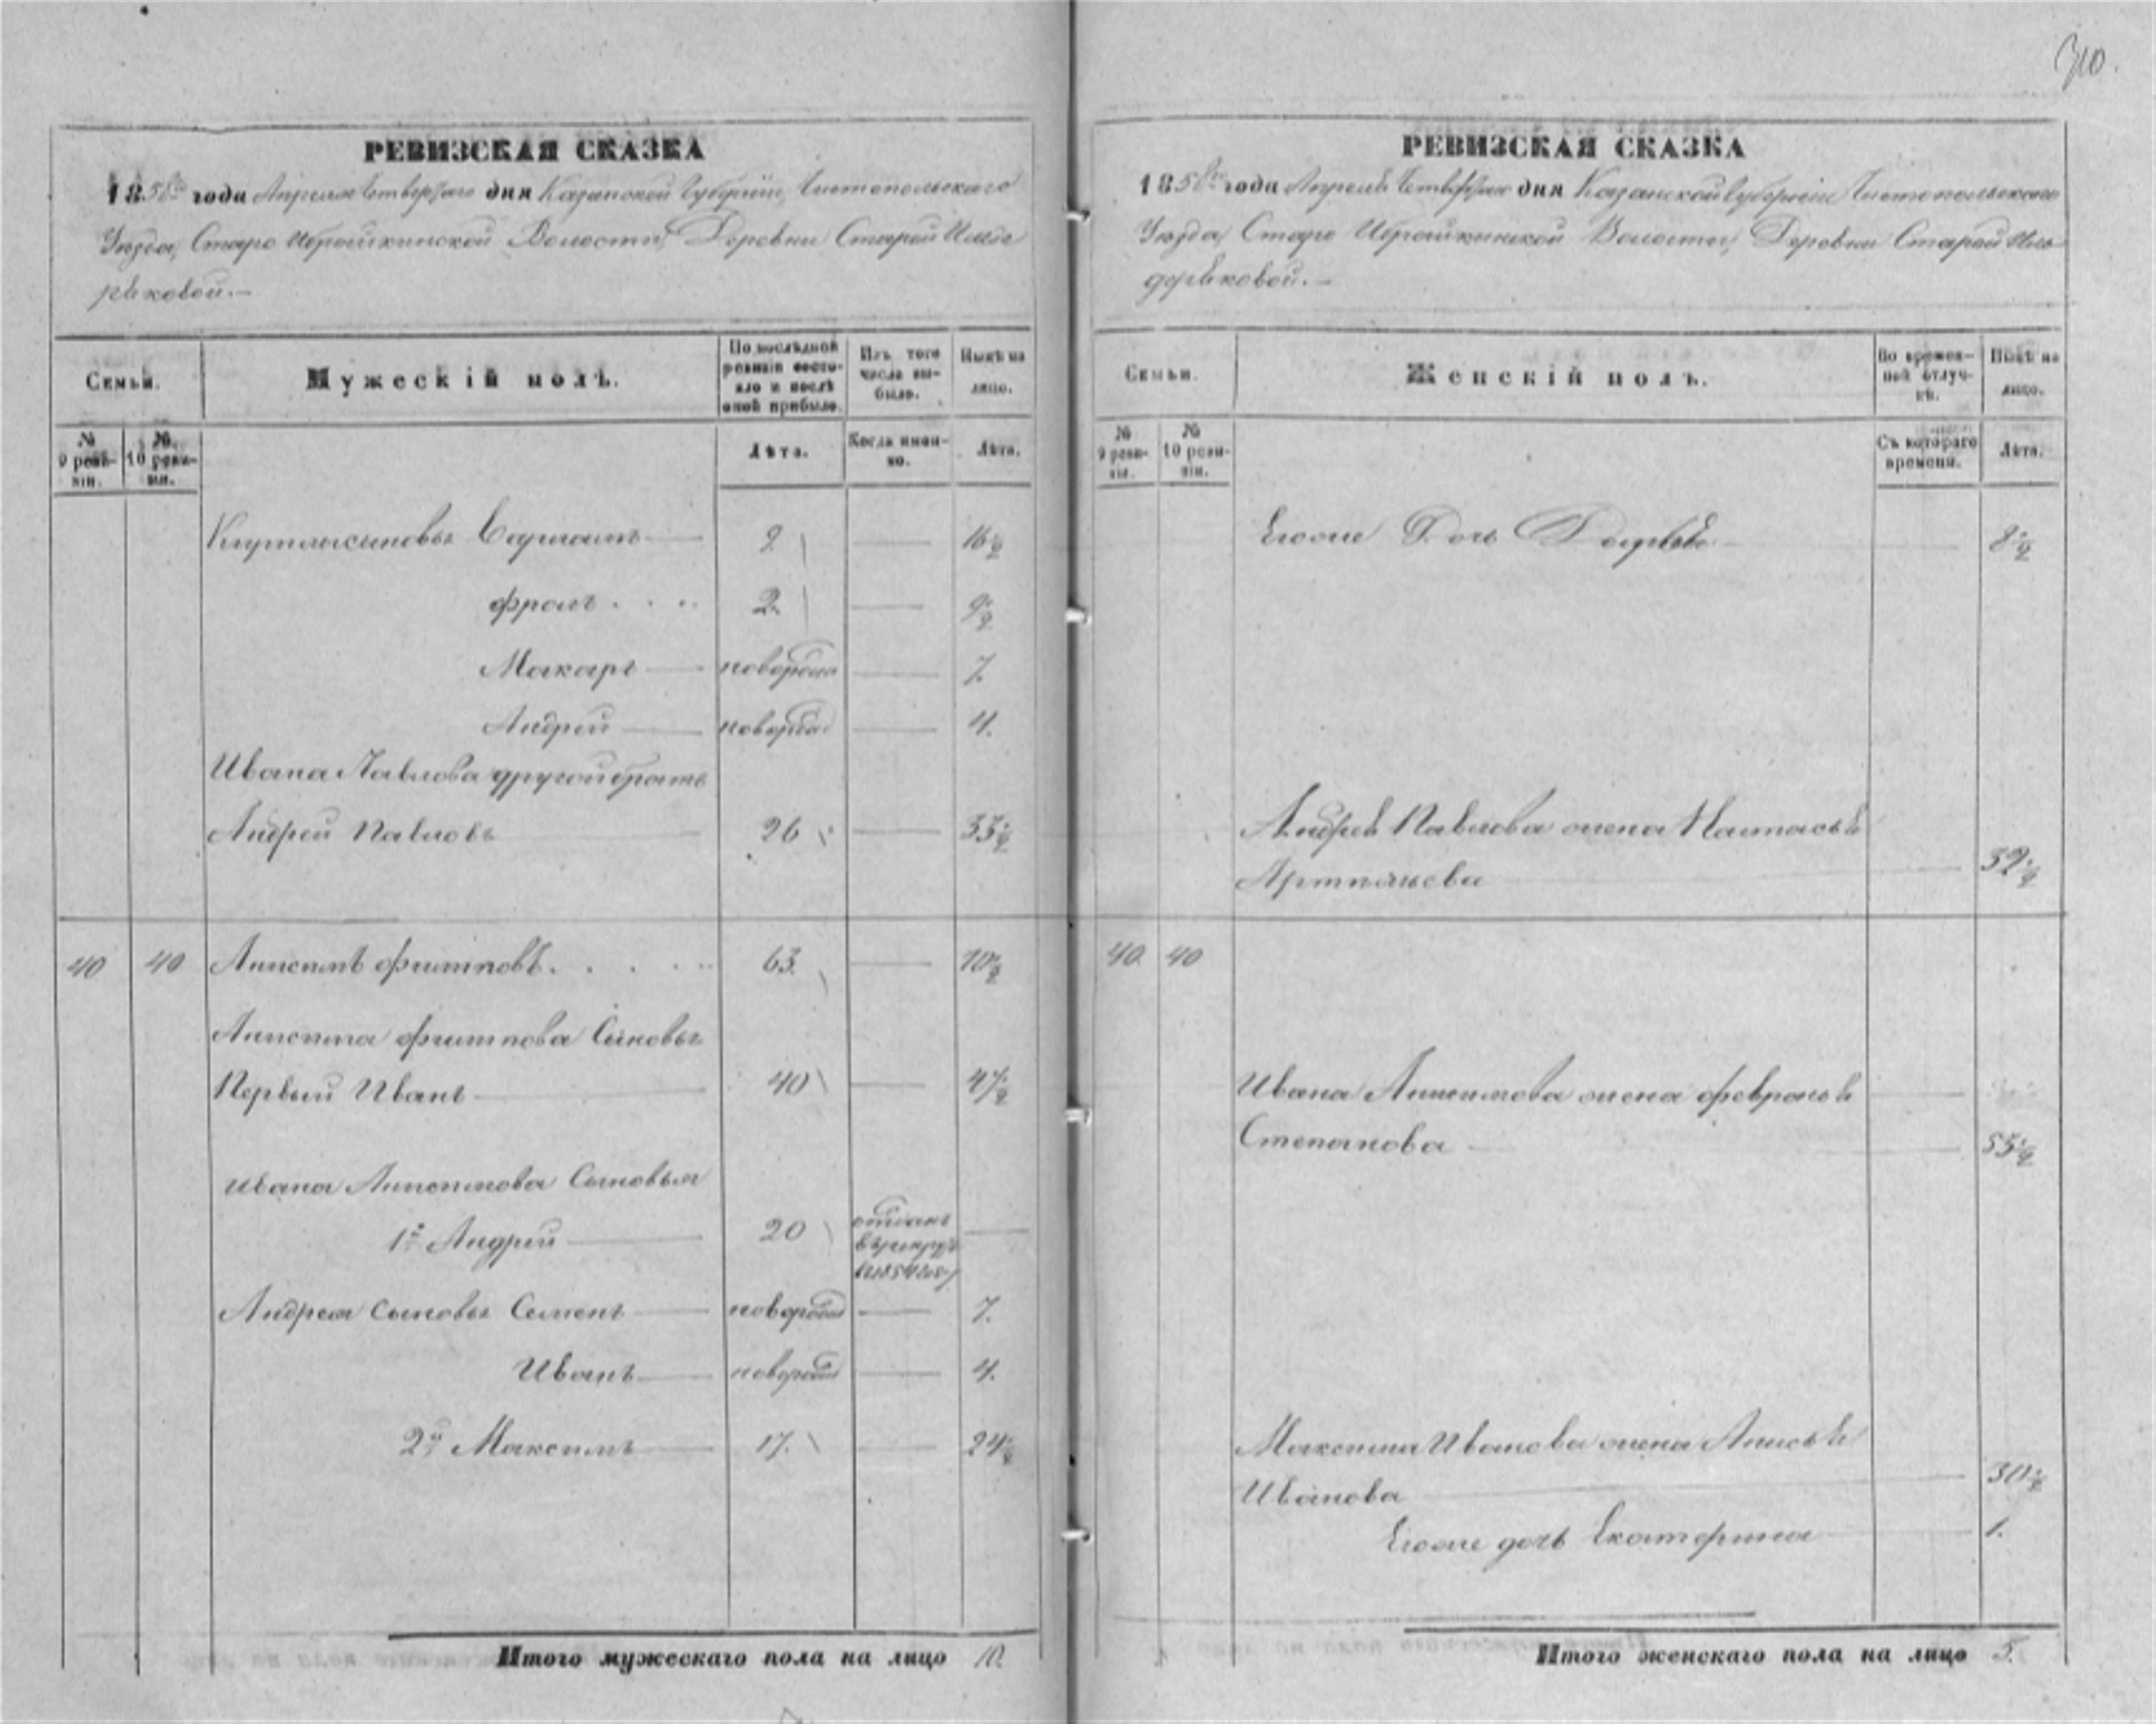 310.
РЕВИЗСКАЯ СКАЗКА
1858го года Апреля Четвертаго дня Казанской Губернiи, Чистопольскаго
Уезда, Старо Ибрайкинской Волости, Деревни Старой Ильде
ряковой.—
Семьи.
Мужескiй полъ.
По последней ревизiи состояло и после оной прибыло.
Изъ того числа выбыло.
Ныне на лицо.
№ 9 ревизiи.
№ 10 ревизiи.
Лѣта.
Когда именно.
Лѣта.
Варламъ — 9 — 16½
Фролъ 2. — 9½
Макаръ — новорожд — 7.
Андрей — новорожд — 4.
Ивана Павлова другой братъ
Андрей Павловъ 26 — 33½
40 40 Анисимъ 63. — 70½
Анисима Сыновья
Первый Иванъ — 40 — 47½
Ивана Анисимова Сыновья
1й Андрей — 20 отданъ въ рекруты въ 1854 году —
Андрея сыновья Семенъ — новорожд — 7.
Иванъ — новорожд — 4.
2й Максимъ — 17. — 24½
Итого мужескаго пола на лицо 10.
РЕВИЗСКАЯ СКАЗКА
1858го года Апреля Четвертаго дня Казанской Губернiи Чистопольскаго
Уезда, Старо Ибрайкинской Волости, Деревни Старой Иль
деряковой.—
Семьи.
Женскiй полъ.
Во временной отлучкѣ.
Ныне на лицо.
№ 9 ревизiи.
№ 10 ревизiи.
Съ котораго времени.
Лѣта.
Егоже Дочь — 8½
Андрея Павлова жена Настасья
— 32½
40. 40
Ивана Анисимова жена Февронья —
Степанова — 55½
Максима Иванова жена Анисья
Иванова — 30½
Егоже дочь Екатерина — 1.
Итого женскаго пола на лицо 5.